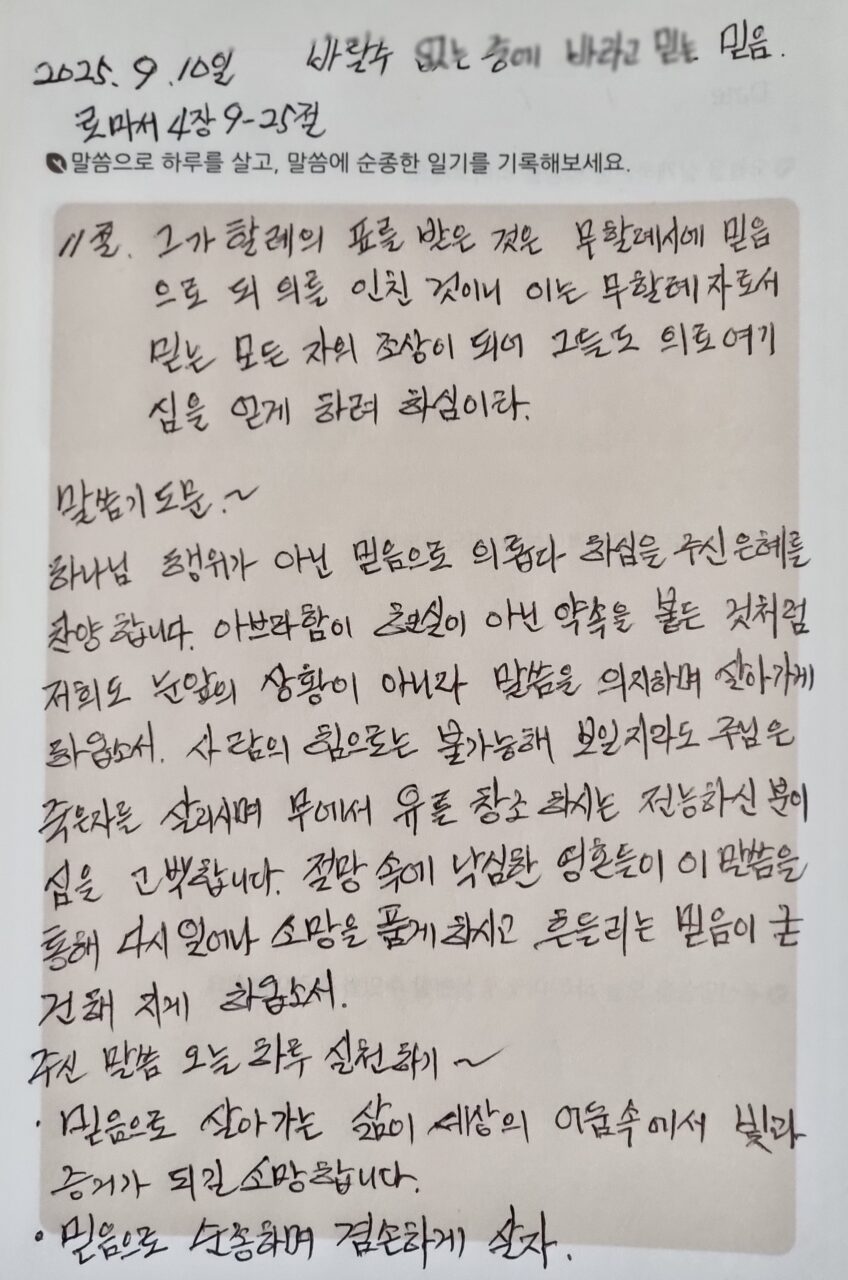 2025. 9. 10일 바랄수 없는 중에 바라고 믿는 믿음.
로마서 4장 9-25절
말씀으로 하루를 살고, 말씀에 순종한 일기를 기록해보세요.
11절. 그가 할례의 표를 받은 것은 무할례시에 믿음
으로 되 의를 인친 것이니 이는 무할례자로서
믿는 모든 자의 조상이 되어 그들도 의로 여기
심을 얻게 하려 하심이라.
말씀기도문.~
하나님 행위가 아닌 믿음으로 의롭다 하심을 주신 은혜를
찬양합니다. 아브라함이 현실이 아닌 약속을 붙든 것처럼
저희도 눈앞의 상황이 아니라 말씀을 의지하며 살아가게
하옵소서. 사람의 힘으로는 불가능해 보일지라도 주님은
죽은자를 살리시며 무에서 유를 창조 하시는 전능하신 분이
심을 고백합니다. 절망 속에 낙심한 영혼들이 이 말씀을
통해 다시 일어나 소망을 품게 하시고 흔들리는 믿음이 굳
건해 지게 하옵소서.
주신 말씀 오늘 하루 실천하기 ~
· 믿음으로 살아가는 삶이 세상의 어둠속에서 빛과
증거가 되길 소망합니다.
· 믿음으로 순종하며 겸손하게 살자.